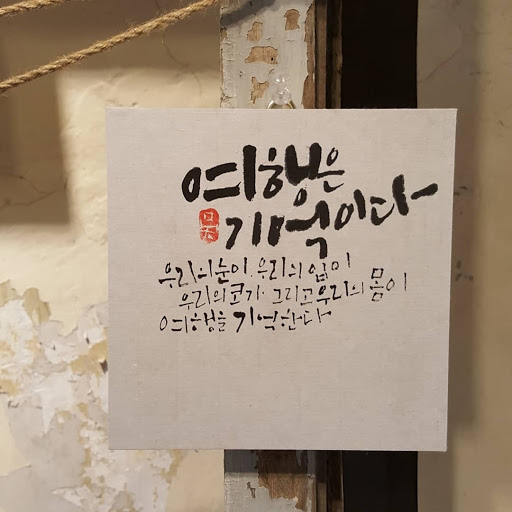 여행은
기억이다
우리의 눈이, 우리의 입이
우리의 코가 그리고 우리의 몸이
여행을 기억한다